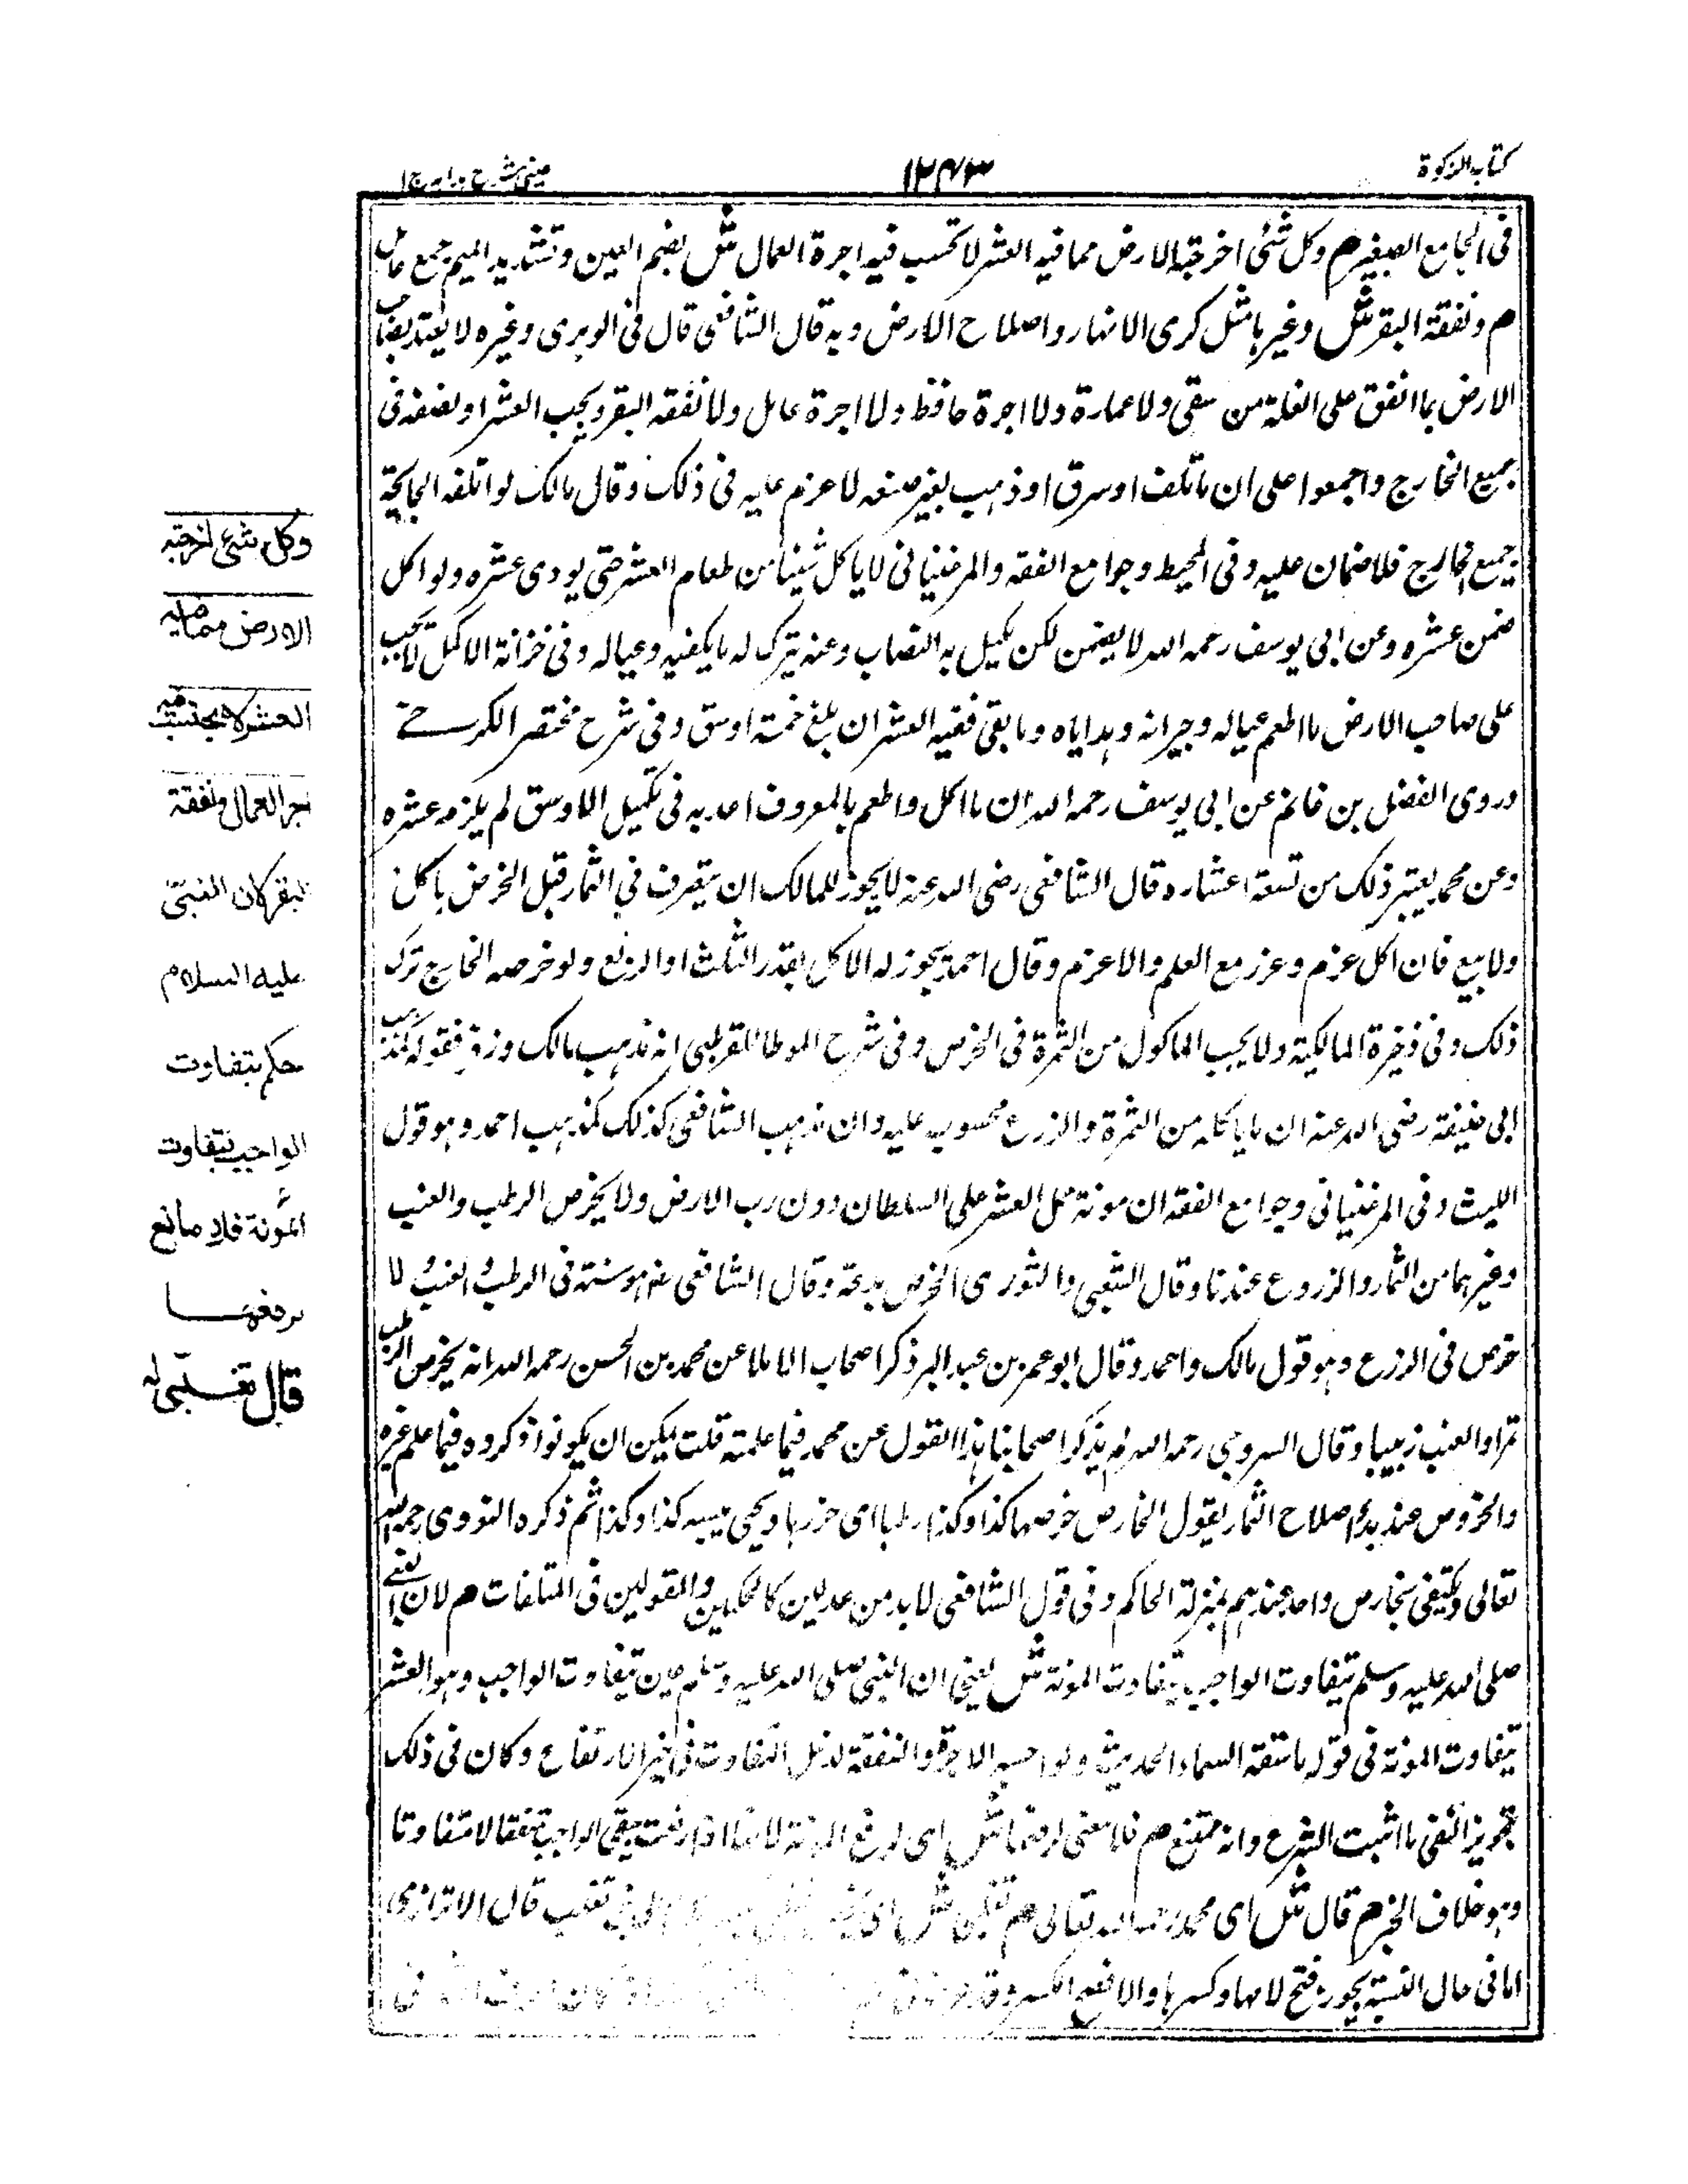 كتاب الزكوة
١٢٤٣
عینی شرح ہدایہ ج١
فی الجامع الصغیر م وکل شئی اخرجتہ الارض مما فیہ العشر لا تحسب فیہ اجرة العمال ش بضم العین وتشدید المیم جمع عامل
م ونفقة البقر ش وغیرہا مثل کری الانہار واصلاح الارض وبہ قال الشافعی قال فی الوبری وغیرہ لا یعتد لصاحب
الارض بما انفق علی الغلة من سقی ولا عمارة ولا اجرة حافظ ولا اجرة عامل ولا نفقة البقر ویجب العشر او نصفہ فی
جمیع الخارج واجمعوا علی ان ما تلف او سرق او ذہب بغیر صنعہ لا عزم علیہ فی ذلک وقال مالک لو اتلفہ الجایحة
جمیع الخارج فلا ضمان علیہ وفی المحیط وجوامع الفقہ والمرغینانی لا یاکل شیئا من طعام العشر حتی یودی عشرہ ولو اکل
ضمن عشرہ وعن ابی یوسف رحمہ اللہ لا یضمن لکن یکمل بہ النصاب وعنہ یترک لہ ما یکفیہ وعیالہ وفی خزانة الاکمل لا یجب
علی صاحب الارض ما اطعم عیالہ وجیرانہ وہدایاہ وما بقی ففیہ العشر ان بلغ خمسة اوسق وفی شرح مختصر الکرخے
وروی الفضل بن غانم عن ابی یوسف رحمہ اللہ ان ما اکل واطعم بالمعروف اعد بہ فی تکمیل الاوسق لم یلزمہ عشرہ
وعن محمد یعتبر ذلک من تسعة اعشارہ وقال الشافعی رضی اللہ عنہ لا یجوز للمالک ان یتصرف فی الثمار قبل الخرص باکل
ولا بیع فان اکل عزم وعزر مع العلم والا عزم وقال احمد یجوز لہ الاکل بقدر الثلث او الربع ولو خرصہ الخارج ترک
ذلک وفی ذخیرة المالکیة ولا یحسب الماکول من الثمرة فی الخرص وفی شرح الموطا للقرطبی انہ مذہب مالک وزفر فقولہ کمذہب
ابی حنیفة رضی اللہ عنہ ان ما یاکلہ من الثمرة والزرع محسوب علیہ وان مذہب الشافعی کذلک کمذہب احمد وہو قول
اللیث وفی المرغینانی وجوامع الفقہ ان مونة حمل العشر علی السلطان دون رب الارض ولا یخرص الرطب والعنب
وغیرہما من الثمار والزروع عندنا وقال الشعبی والثوری الخرص بدعة وقال الشافعی عنہ ہو سنة فی الرطب والعنب لا
خرص فی الزرع وہو قول مالک واحمد وقال ابو عمر بن عبد البر ذکر اصحاب الاملا عن محمد بن الحسن رحمہ اللہ انہ یخرص الرطب
تمرا والعنب زبیبا وقال السروجی رحمہ اللہ لم یذکر اصحابنا ہذا القول عن محمد فیما علمتہ قلت یمکن ان یکونوا ذکروہ فیما علم غیرہ
والخروص عند بدو صلاح الثمار یقول الخارص خرصہا کذا وکذا رطبا ای حزرہا ویجی یبسہ کذا وکذا ثم ذکرہ النووی رحمہ اللہ
تعالی ویکتفی بخارص واحد عندہم بمنزلة الحاکم وفی قول الشافعی لا بد من عدلین کالحکمین والمقولین فی المتلفات م لان النبے
صلی اللہ علیہ وسلم بتفاوت الواجب بتفاوت المونة ش یعنی ان النبی صلی اللہ علیہ وسلم بین بتفاوت الواجب وہو العشر
بتفاوت المونة فی قولہ ما سقتہ السماء الحدیث ولو احسب الاجرة والنفقة لدخل التفاوت فی خیر الارتفاع وکان فی ذلک
تجویز النفی ما اثبت الشرع وانہ ممتنع م فلا معنی لرفعہا ش ای لرفع المونة لانہا اذا رفعت یبقی الواجب متفقا لا متفاوتا
وہو خلاف الخبر م قال ش ای محمد رحمہ اللہ تعالی م تغلبی ش ای تغلب قال الاترازی
اما فی حال النسبة یجوز فتح لامہا وکسرہا والافصح الکسر وقد
وکل شئ اخرجتہ
الارض مما فیہ
العشر لا یحتسب فیہ
اجر العمال ونفقة
البقر لان النبی
علیہ السلام
حکم بتفاوت
الواجب بتفاوت
المؤنة فلا مانع
برفعہا
قال تغلبی لہ